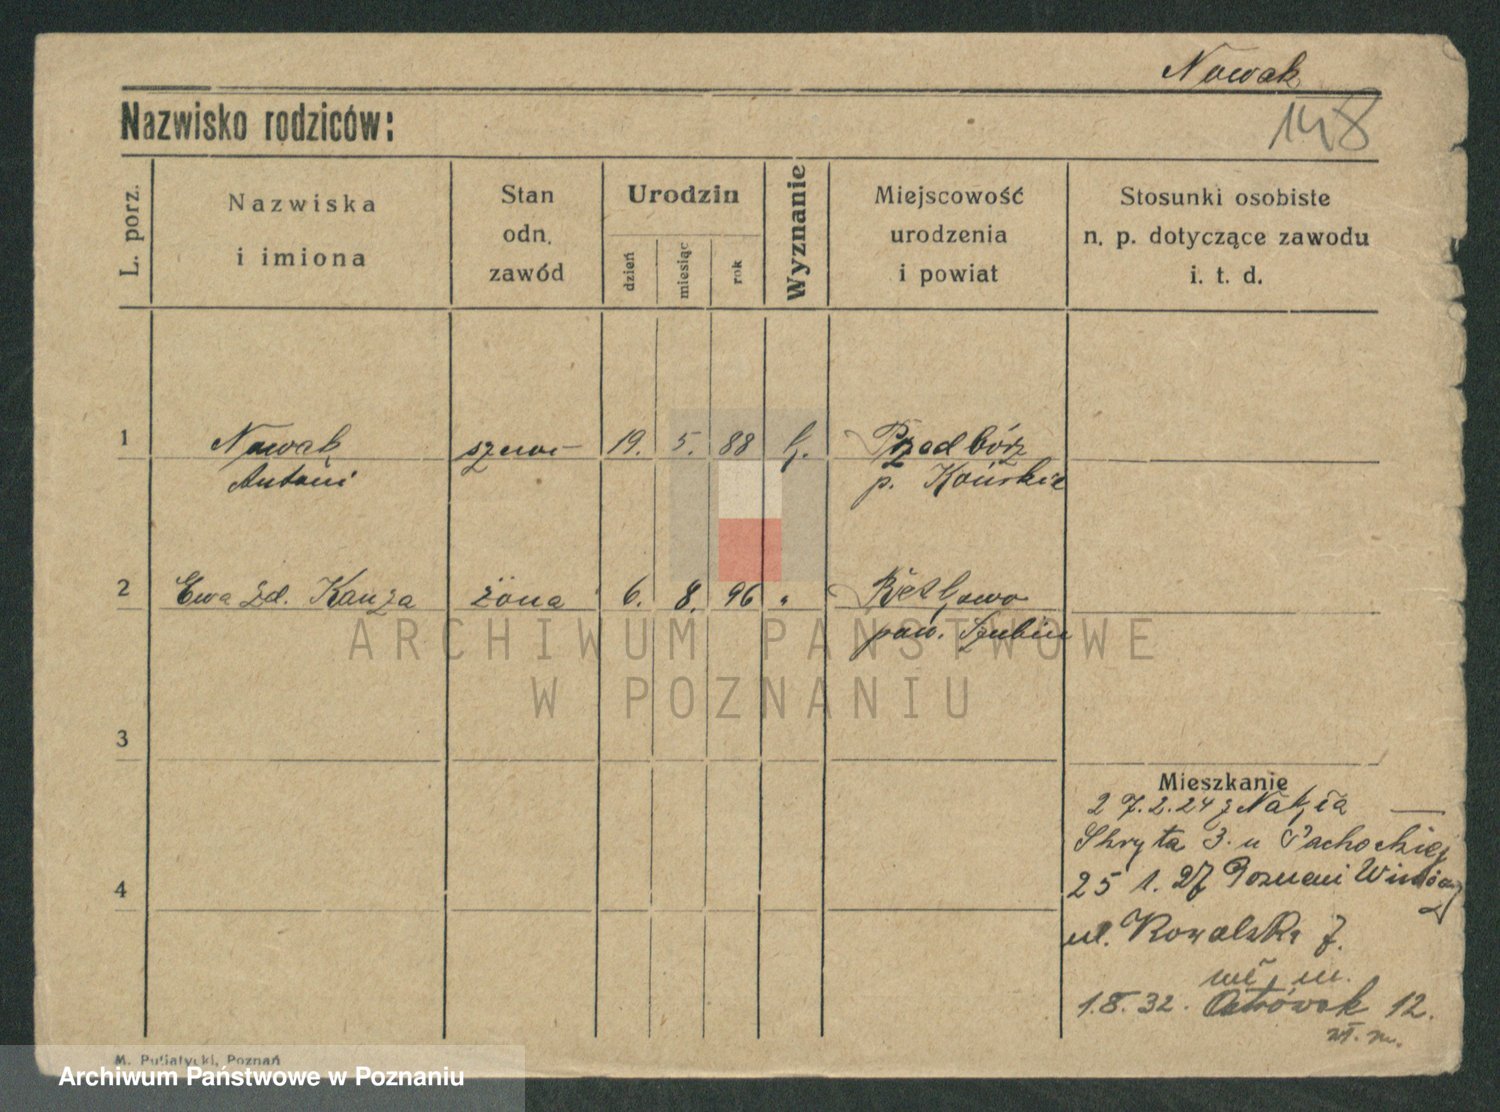 Nowak
Nazwisko rodziców:
148
L. porz.
Nazwiska
i imiona
Stan
odn.
zawód
Urodzin
dzień
miesiąc
rok
Wyznanie
Miejscowość
urodzenia
i powiat
Stosunki osobiste
n. p. dotyczące zawodu
i. t. d.
1 Nowak szewc 19. 5. 88 k. Przedbórz
Antoni p. Końskie
2 Ewa zd. Kanza żona 6. 8. 96 " 
pow. Szubin
ARCHIWUM PAŃSTWOWE
W POZNANIU
3
Mieszkanie
27.2.24 z Nakła
Skryta 3. u Pachockiej
4
25 1. 27 Poznań
ul. Kowalska 7.
1.8.32. Ostrówek 12.
M. Putiatycki, Poznań
Archiwum Państwowe w Poznaniu